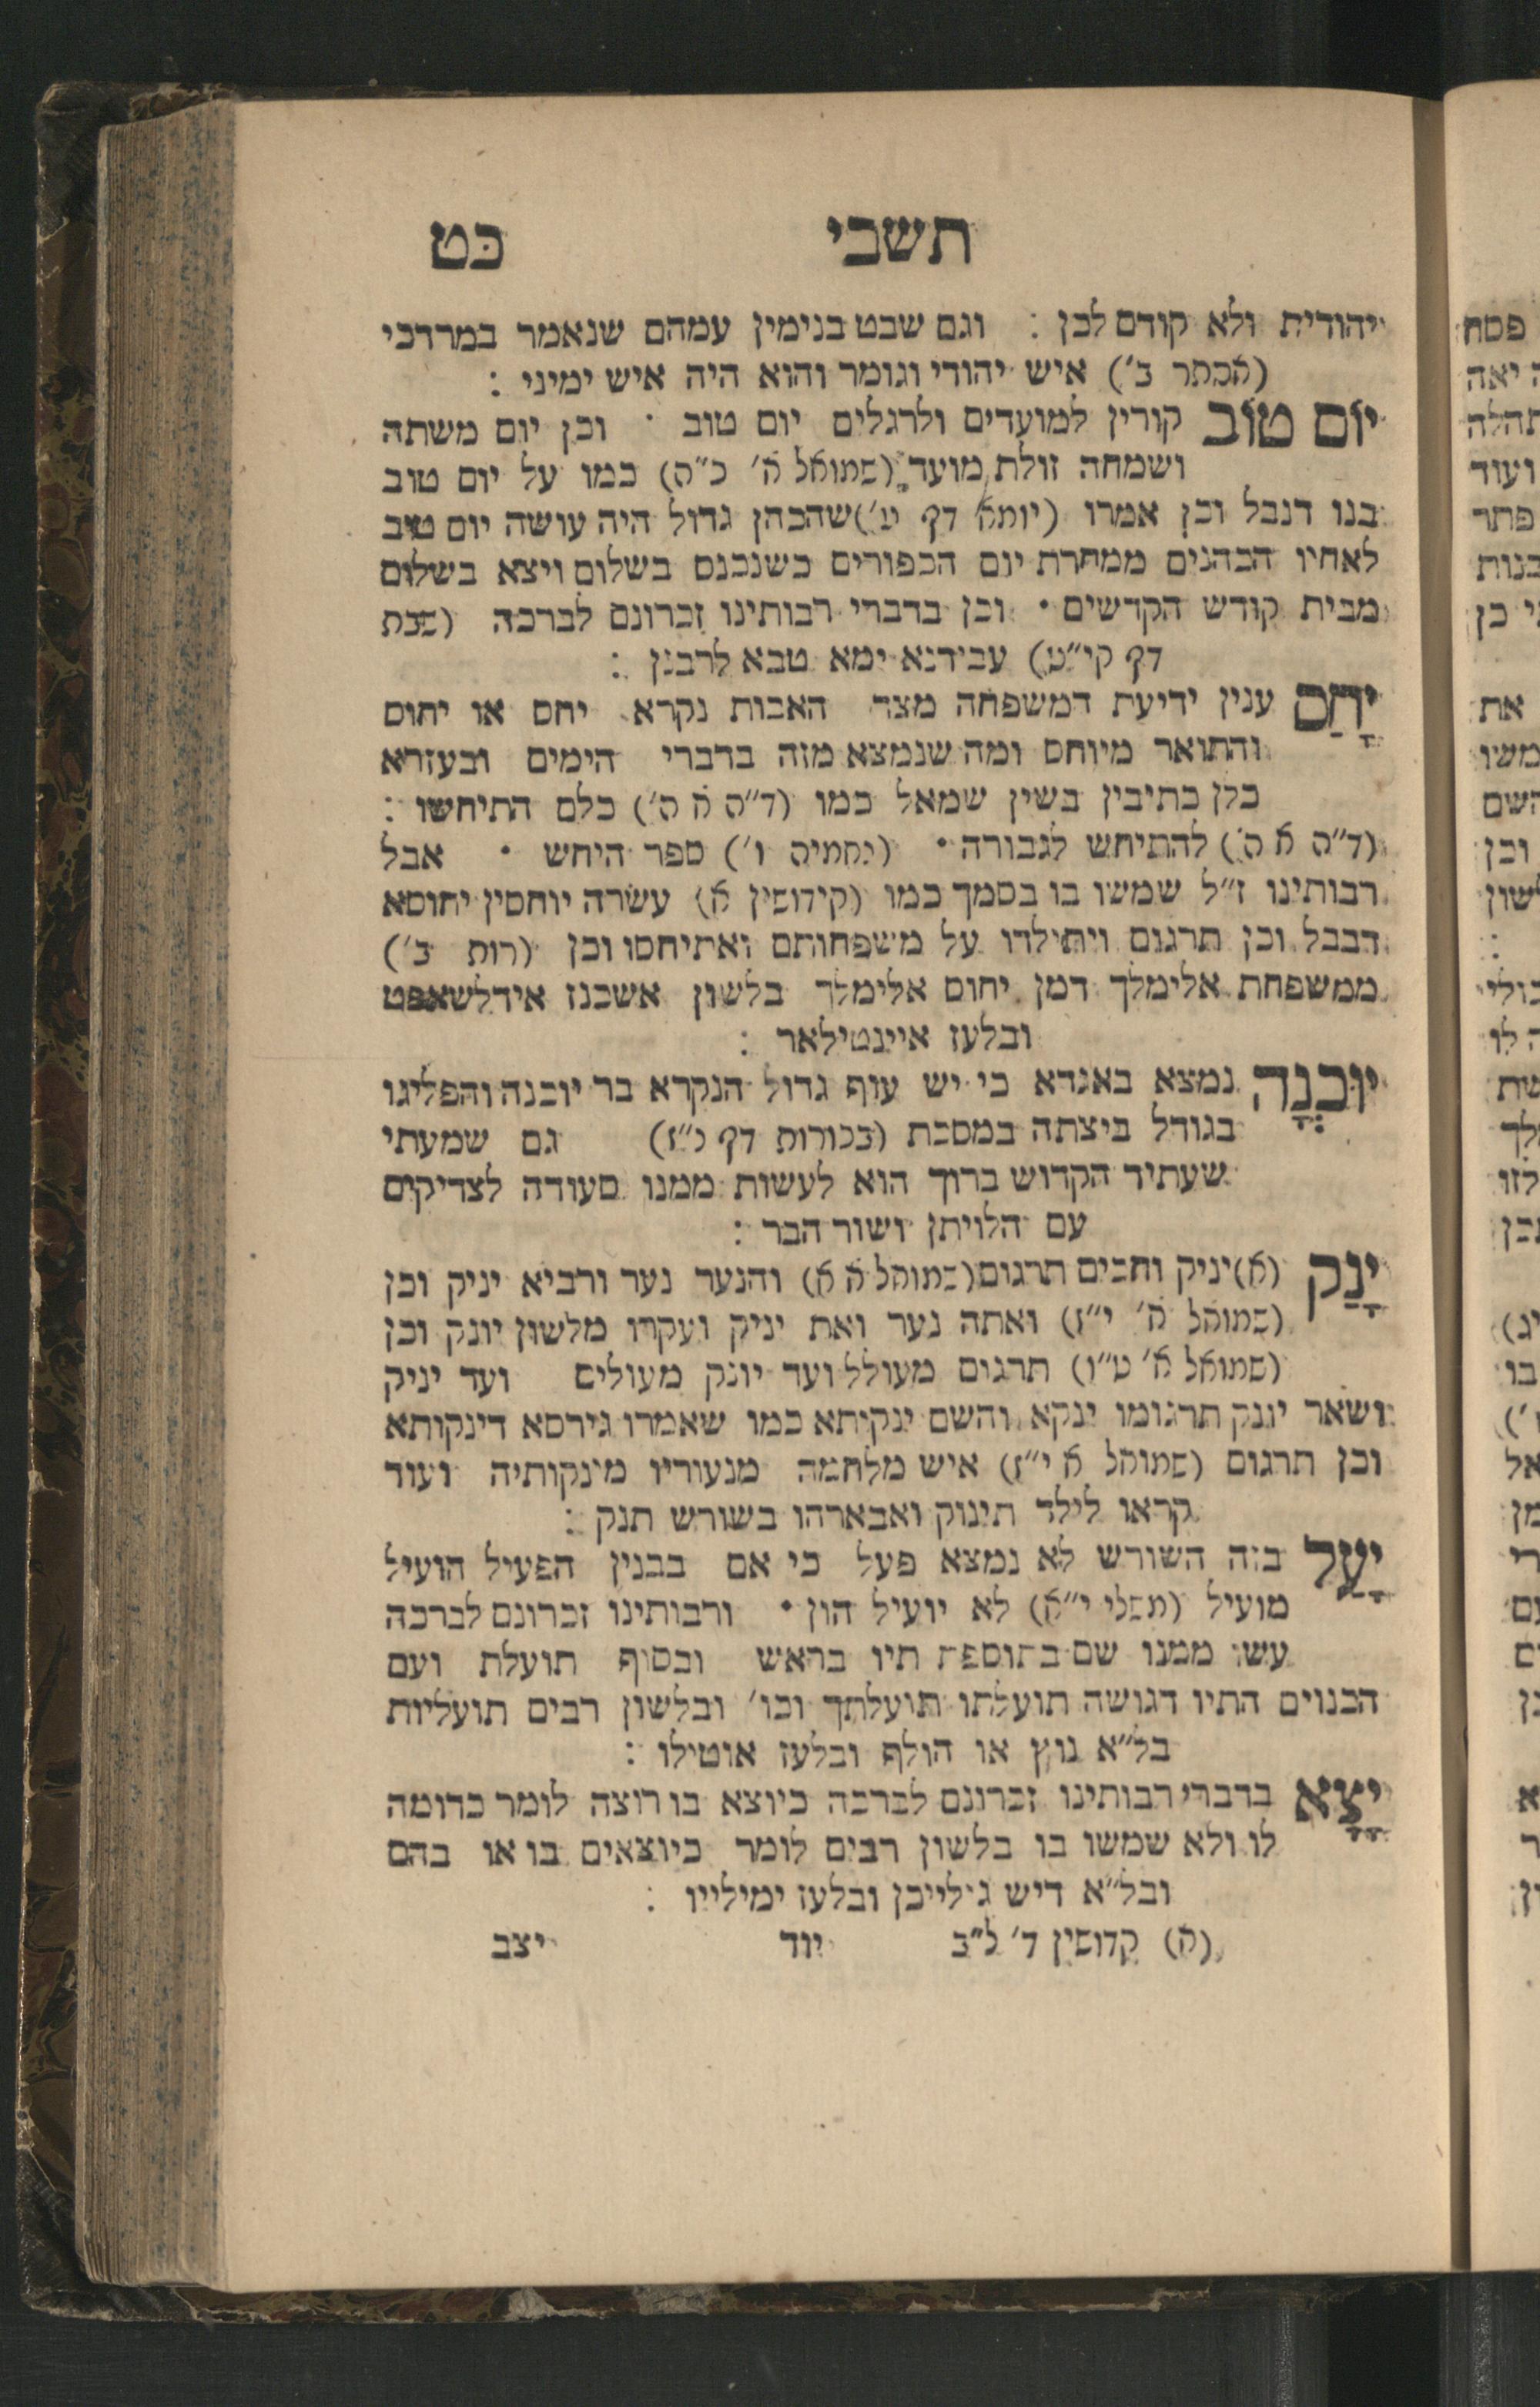 תשבי כט
יהודית ולא קודם לכן : וגם שבט בנימין עמהם שנאמר במרדכי
(אסתר ב׳) איש יהודי וגומר והוא היה איש ימיני :
יוֹם טוֹב קורין למועדים ולרגלים יום טוב · וכן יום משתה
ושמחה זולת מועד (שמואל א׳ כ״ה) כמו על יום טוב
בנו דנבל וכן אמרו (יומא דף ע׳) שהכהן גדול היה עושה יום טוב
לאחיו הכהנים ממחרת יום הכפורים כשנכנס בשלום ויצא בשלום
מבית קודש הקדשים · וכן בדברי רבותינו זכרונם לברכה (שבת
דף קי״ט) עבידנא יומא טבא לרבנן :
יָחַס ענין ידיעת המשפחה מצד האבות נקרא יחס או יחוס
והתואר מיוחס ומה שנמצא מזה בדברי הימים ובעזרא
כלן כתיבין בשין שמאל כמו (ד״ה א ה׳) כלם התיחשו :
(ד״ה א ה׳) להתיחש לגבורה · (נחמיה ו׳) ספר היחש · אבל
רבותינו ז״ל שמשו בו בסמך כמו (קידושין א) עשרה יוחסין יחוסא
דבבל וכן תרגום ויתילדו על משפחותם ואתיחסו וכן (רות ב׳)
ממשפחת אלימלך דמן יחוס אלימלך בלשון אשכנז אידלשאפט
ובלעז איינטילאר :
יוּכְנָה נמצא באגדא כי יש עוף גדול הנקרא בר יוכנה והפליגו
בגודל ביצתה במסכת (בכורות דף נ״ז) גם שמעתי
שעתיד הקדוש ברוך הוא לעשות ממנו סעודה לצדיקים
עם הלויתן ושור הבר :
יָנַק (א) יניק וחכים תרגום (שמואל א א) והנער נער ורביא יניק וכן
(שמואל א׳ י״ז) ואתה נער ואת יניק ועקרו מלשון יונק וכן
(שמואל א׳ ט״ו) תרגום מעולל ועד יונק מעולים ועד יניק
ושאר יונק תרגומו ינקא והשם ינקותא כמו שאמרו גירסא דינקותא
וכן תרגום (שמואל א י״ז) איש מלחמה מנעוריו מינקותיה ועוד
קראו לילד תינוק ואבארהו בשורש תנק :
יָעַל בזה השורש לא נמצא פעל כי אם בבנין הפעיל הועיל
מועיל (משלי י״א) לא יועיל הון · ורבותינו זכרונם לברכה
עשו ממנו שם בתוספת תיו בראש ובסוף תועלת ועם
הכנוים התיו דגושה תועלתו תועלתך וכו׳ ובלשון רבים תועליות
בל״א נוץ או הולף ובלעז אוטילו :
יָצָא בדברי רבותינו זכרונם לברכה כיוצא בו רוצה לומר כדומה
לו ולא שמשו בו בלשון רבים לומר כיוצאים בו או בהם
ובל״א דיש גלייכן ובלעז ימילייו :
(א) קדושין ד׳ ל״ב יוד יצב